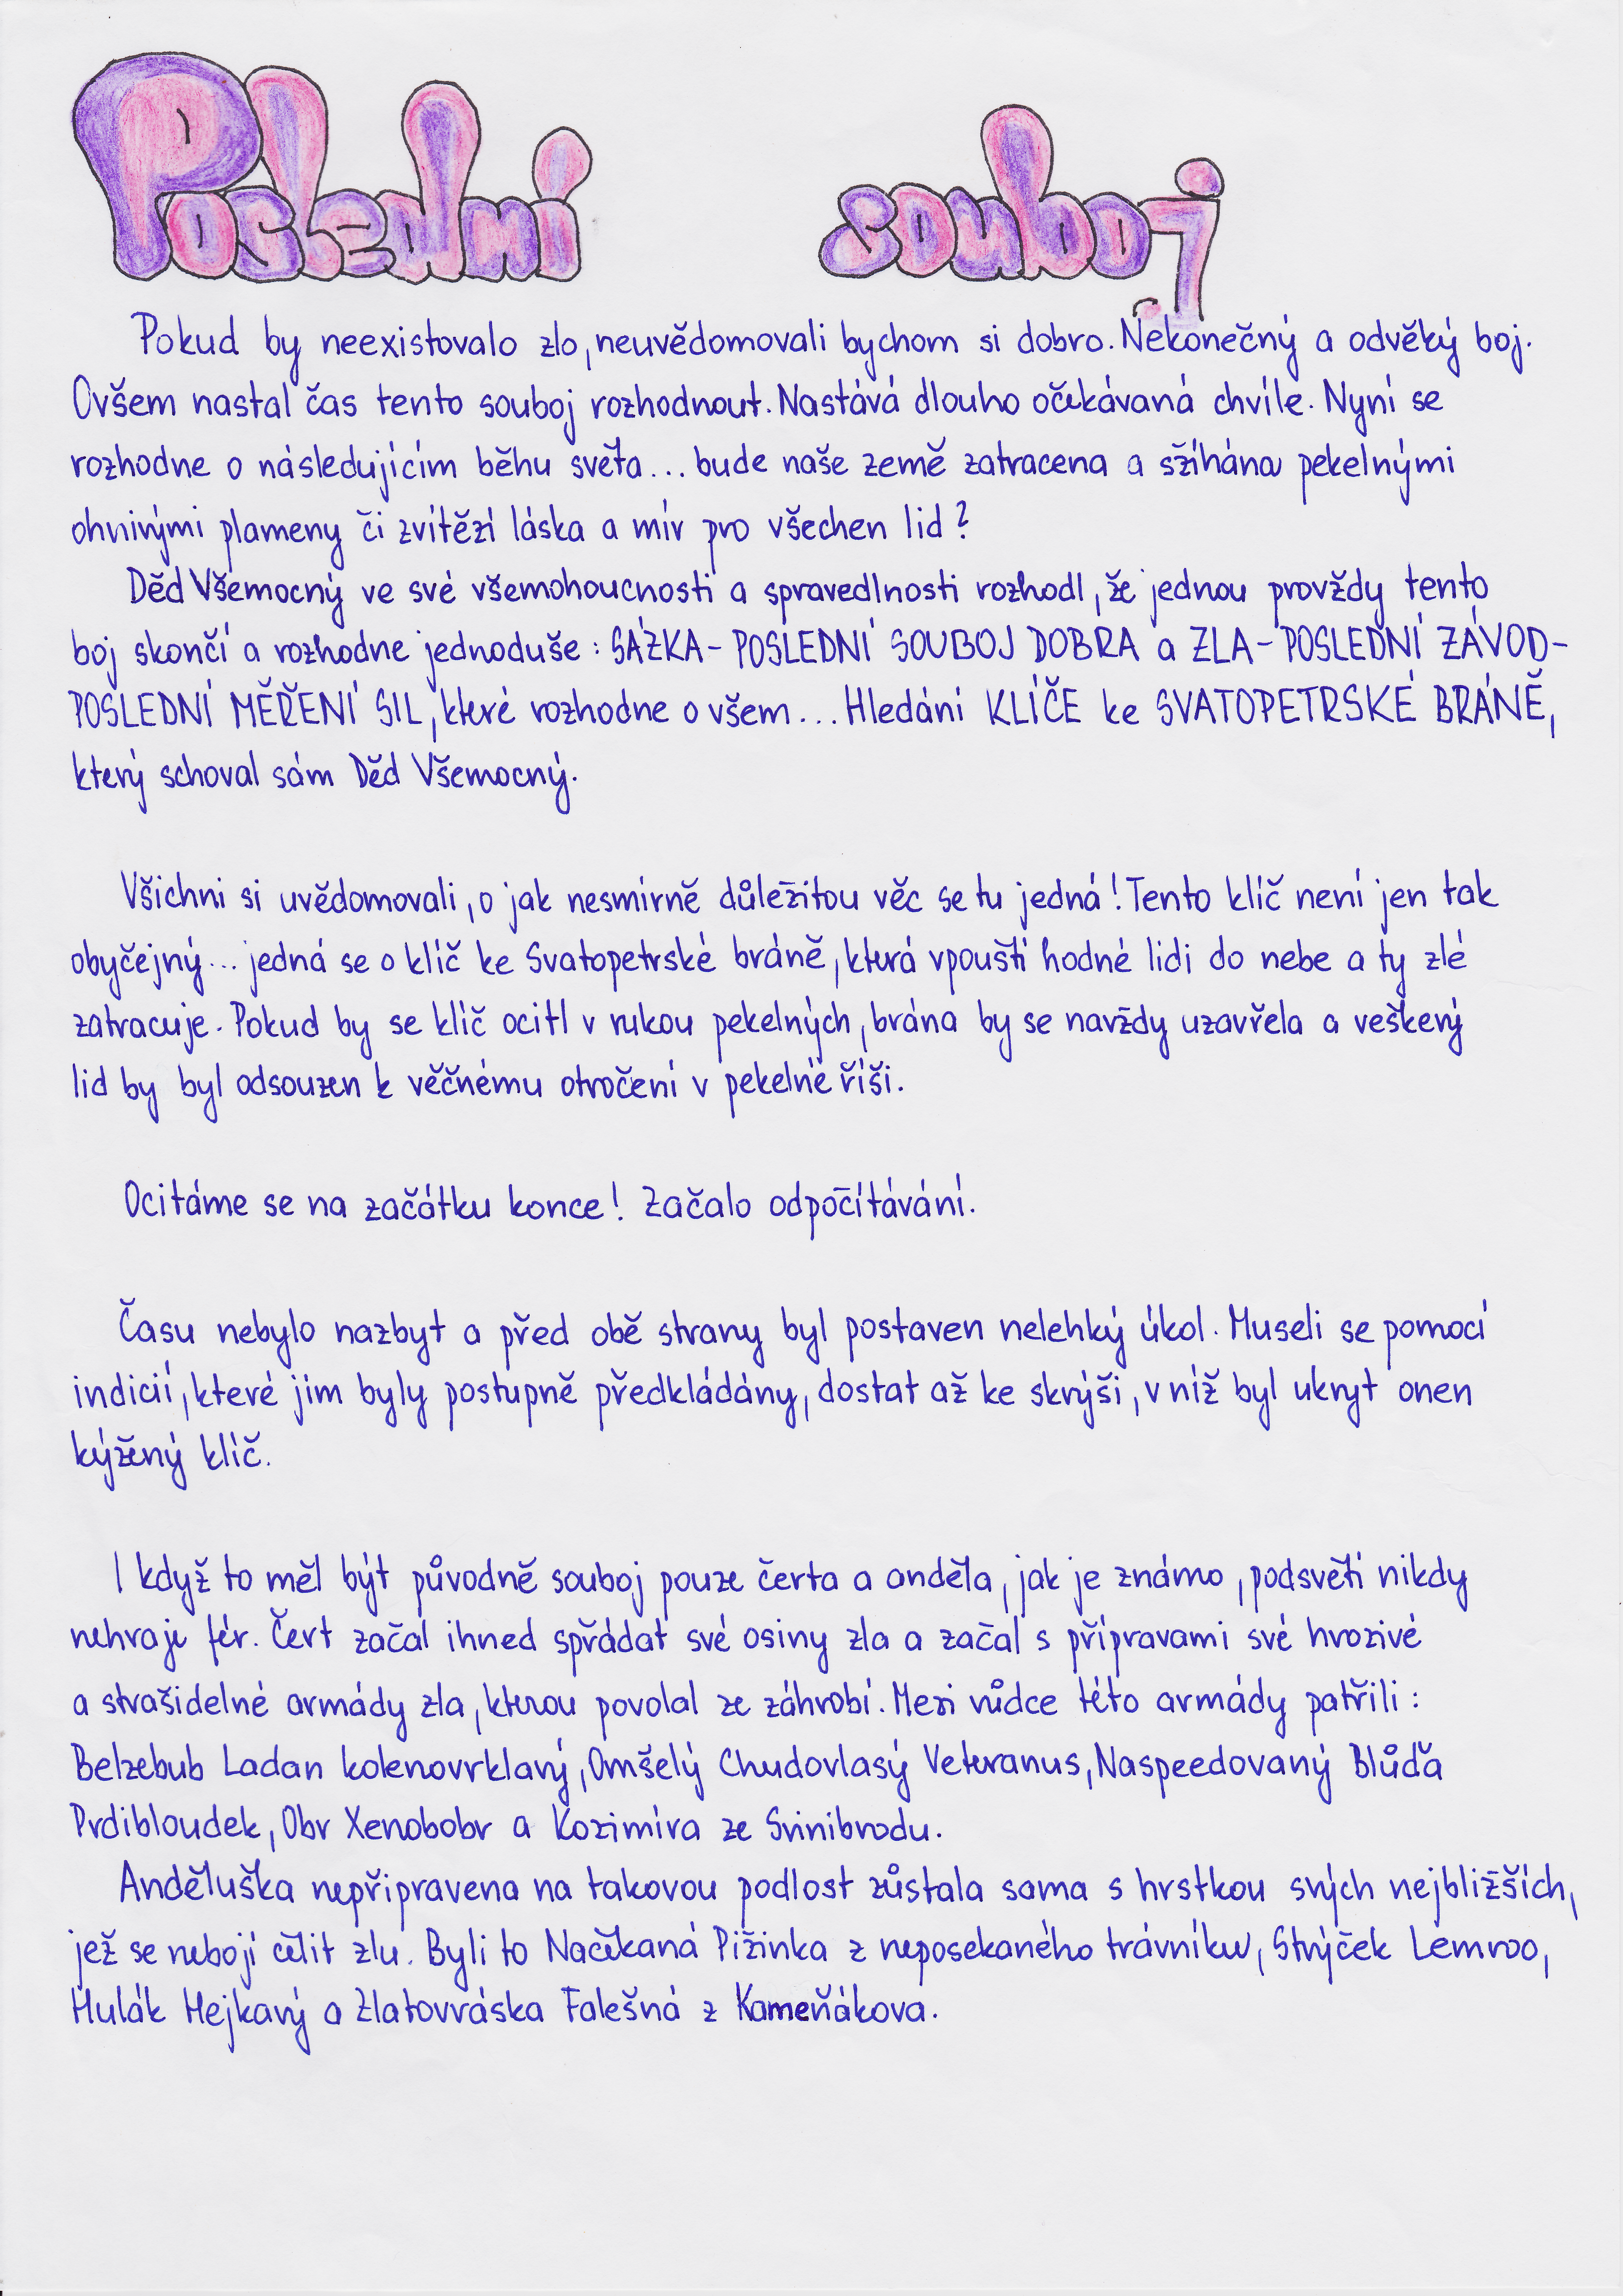 Poslední souboj
Pokud by neexistovalo zlo, neuvědomovali bychom si dobro. Nekonečný a odvěký boj.
Ovšem nastal čas tento souboj rozhodnout. Nastává dlouho očekávaná chvíle. Nyní se
rozhodne o následujícím běhu světa... bude naše země zatracena a sžíhána pekelnými
ohnivými plameny či zvítězí láska a mír pro všechen lid?
Děd Všemocný ve své všemohoucnosti a spravedlnosti rozhodl, že jednou provždy tento
boj skončí a rozhodne jednoduše: SÁZKA - POSLEDNÍ SOUBOJ DOBRA a ZLA - POSLEDNÍ ZÁVOD -
POSLEDNÍ MĚŘENÍ SIL, které rozhodne o všem... Hledání KLÍČE ke SVATOPETRSKÉ BRÁNĚ,
který schoval sám Děd Všemocný.
Všichni si uvědomovali, o jak nesmírně důležitou věc se tu jedná! Tento klíč není jen tak
obyčejný... jedná se o klíč ke Svatopetrské bráně, která vpouští hodné lidi do nebe a ty zlé
zatracuje. Pokud by se klíč ocitl v rukou pekelných, brána by se navždy uzavřela a veškerý
lid by byl odsouzen k věčnému otročení v pekelné říši.
Ocitáme se na začátku konce! Začalo odpočítávání.
Času nebylo nazbyt a před obě strany byl postaven nelehký úkol. Museli se pomocí
indicií, které jim byly postupně předkládány, dostat až ke skrýši, v níž byl ukryt onen
kýžený klíč.
I když to měl být původně souboj pouze čerta a anděla, jak je známo, podsvětí nikdy
nehraje fér. Čert začal ihned spřádat své osiny zla a začal s přípravami své hrozivé
a strašidelné armády zla, kterou povolal ze záhrobí. Mezi vůdce této armády patřili:
Belzebub Ladan kolenovrklavý, Omšelý Chudovlasý Veteranus, Naspeedovaný Blůďa
Prdibloudek, Obr Xenobobr a Kozimíra ze Svinibrodu.
Anděluška nepřipravena na takovou podlost zůstala sama s hrstkou svých nejbližších,
jež se nebojí čelit zlu. Byli to Načekaná Pižinka z neposekaného trávníku, Strýček Lemroo,
Hulák Hejkavý a Zlatovráska Falešná z Kameňákova.